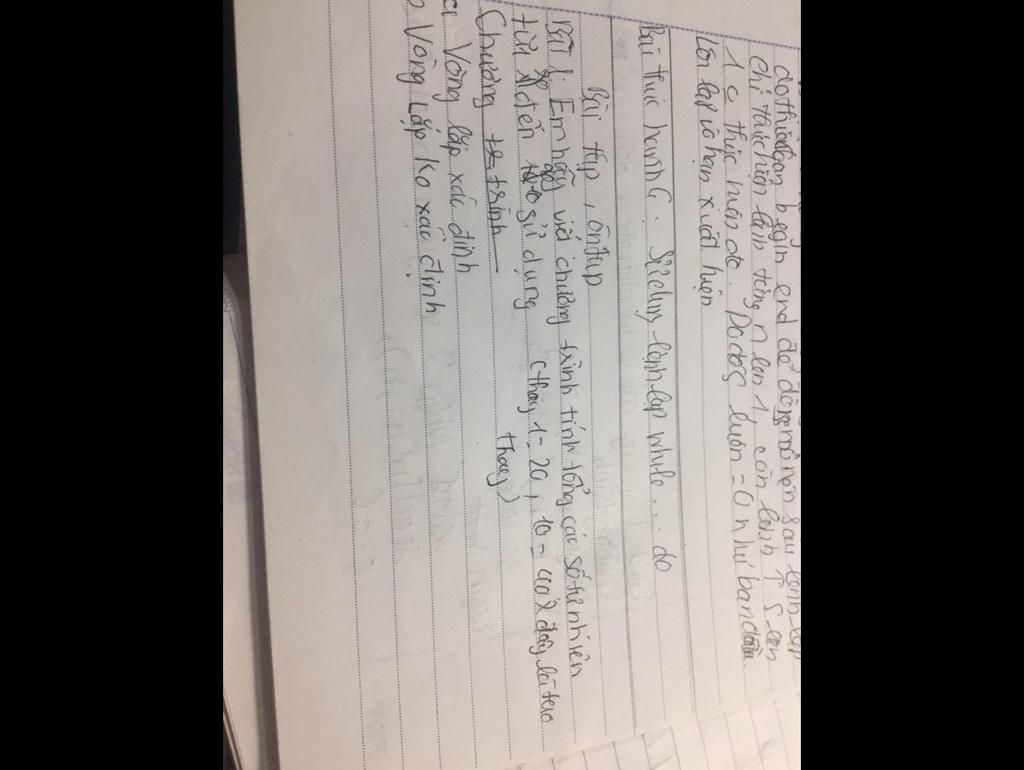 do thiếu begin end để đóng mở nên sau lệnh lặp
chỉ thực hiện lần tăng n lên 1, còn lệnh ↑ S lên
1 c thực hiện dc. Do đó S luôn = 0 như ban đầu
lên lặp vô hạn xuất hiện
Bài thực hành 6. Sử dụng lệnh lặp while... do
Bài tập, ôn tập
Bài 1: Em hãy viết chương trình tính tổng các số tự nhiên
từ đến sử dụng (thay 1 = 20, 10 =
thay)
Chương trình
Vòng lặp xác định
Vòng Lặp Ko xác định